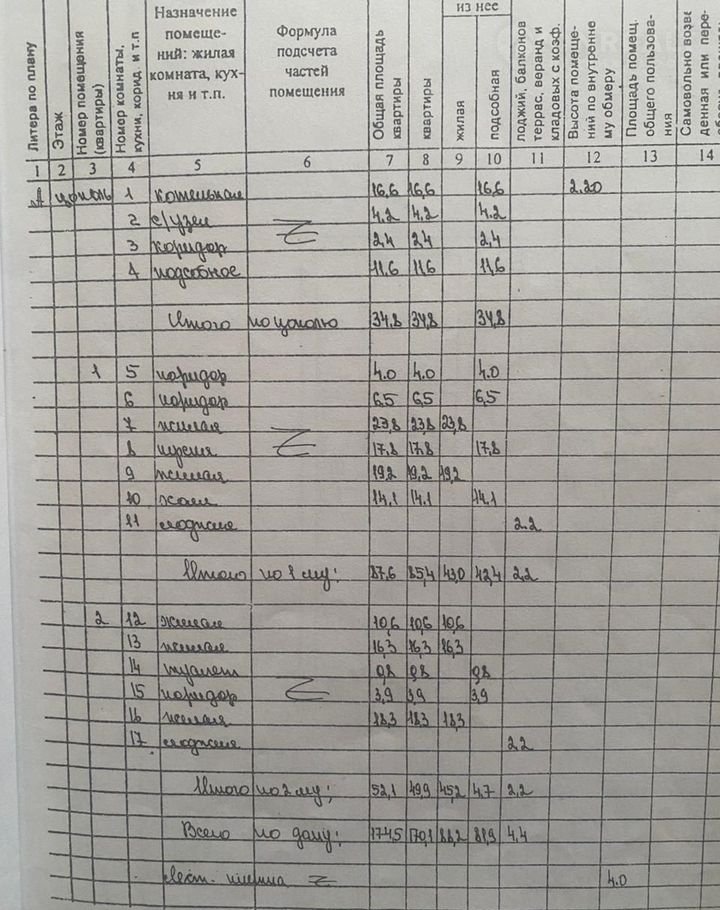 Литера по плану | Этаж | Номер помещения (квартиры) | Номер комнаты, кухни, корид. и т.п | Назначение помеще- ний: жилая комната, кух- ня и т.п. | Формула подсчета частей помещения | Общая площадь квартиры | квартиры | из нее жилая | подсобная | лоджий, балконов террас, веранд и кладовых с коэф. | Высота помеще- ний по внутренне му обмеру | Площадь помещ. общего пользова- ния | Самовольно возве денная или пере-
1 2 3 4 5 6 7 8 9 10 11 12 13 14
А цоколь 1 котельная 16,6 16,6 16,6 2.20
2 с/узел 4.2 4.2 4.2
3 коридор 2,4 2,4 2,4
4 подсобное 11,6 11,6 11,6
Итого по цоколю 34,8 34,8 34,8
1 5 коридор 4.0 4.0 4.0
6 коридор 6,5 6,5 6,5
7 жилая 23,8 23,8 23,8
8 кухня 17,8 17,8 17,8
9 жилая 19,2 19,2 19,2
10 холл 14,1 14,1 14,1
11 лоджия 2.2
Итого по 1 му: 87,6 85,4 43,0 42,4 2,2
2 12 жилая 10,6 10,6 10,6
13 жилая 16,3 16,3 16,3
14 туалет 0,8 0,8 0,8
15 коридор 3,9 3,9 3,9
16 жилая 18,3 18,3 18,3
17 лоджия 2,2
Итого по 2 му: 52,1 49,9 45,2 4.7 2,2
Всего по дому: 174,5 170,1 88,2 81,9 4,4
лест. клетка 4.0